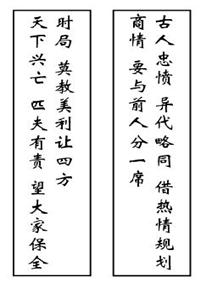 古人忠愤 异代略同 借热情规划
商情 要与前人分一席
天下兴亡 匹夫有责 望大家保全
时局 莫教美利让四方